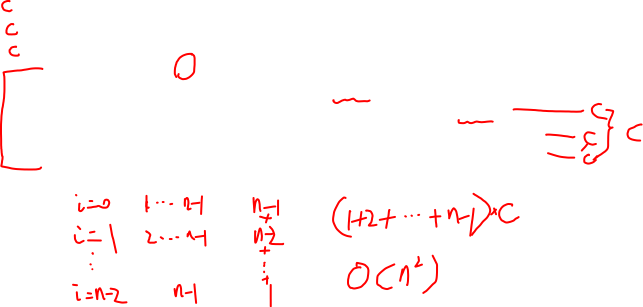 C
C
C
O
C
C
C
C
i=0 1...n-1 n-1
+
i=1 2...n-1 n-2
+
⋮ ⋮
+
i=n-2 n-1 1
(1+2+...+n-1)*C
O(n²)